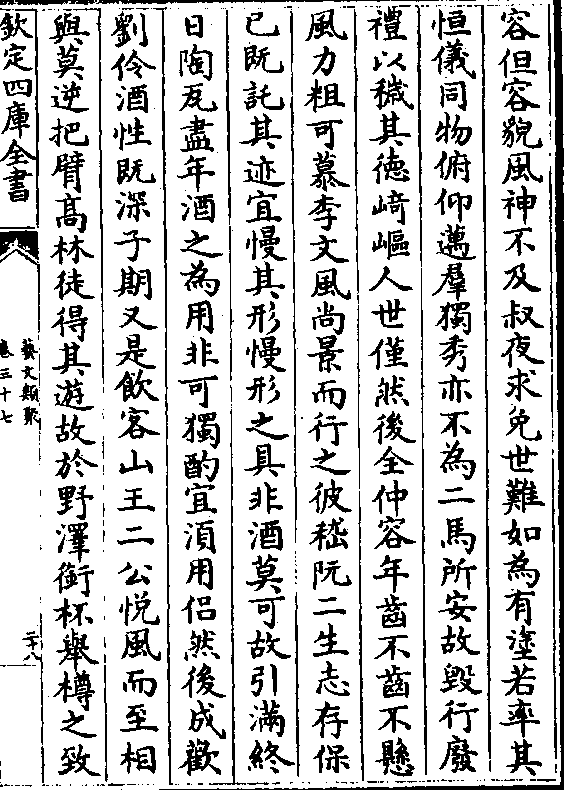 容但容貌風神不及叔夜求免世難如為有塗若率其
恒儀同物俯仰邁羣獨秀亦不為二馬所安故毀行廢
禮以穢其徳﨑嶇人世僅然後全仲容年齒不齒不懸
風力粗可慕李文風尚景而行之彼嵇阮二生志存保
已既託其迹宜慢其形慢形之具非酒莫可故引滿終
日陶瓦盡年酒之為用非可獨酌宜湏用侣然後成歡
劉伶酒性既深子期又是飲客山王二公悦風而至相
與莫逆把臂髙林徒得其遊故於野澤銜杯舉樽之致
欽定四庫全書
藝文類聚
卷三十七
二十八